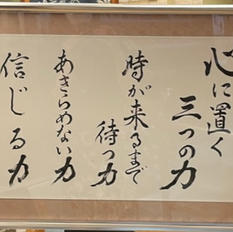 心に置く
三つの力
時が来るまで
待つ力
あきらめない力
信じる力